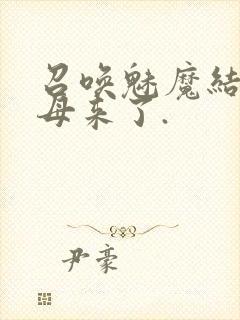 召唤魅魔结
母来了.
尹豪